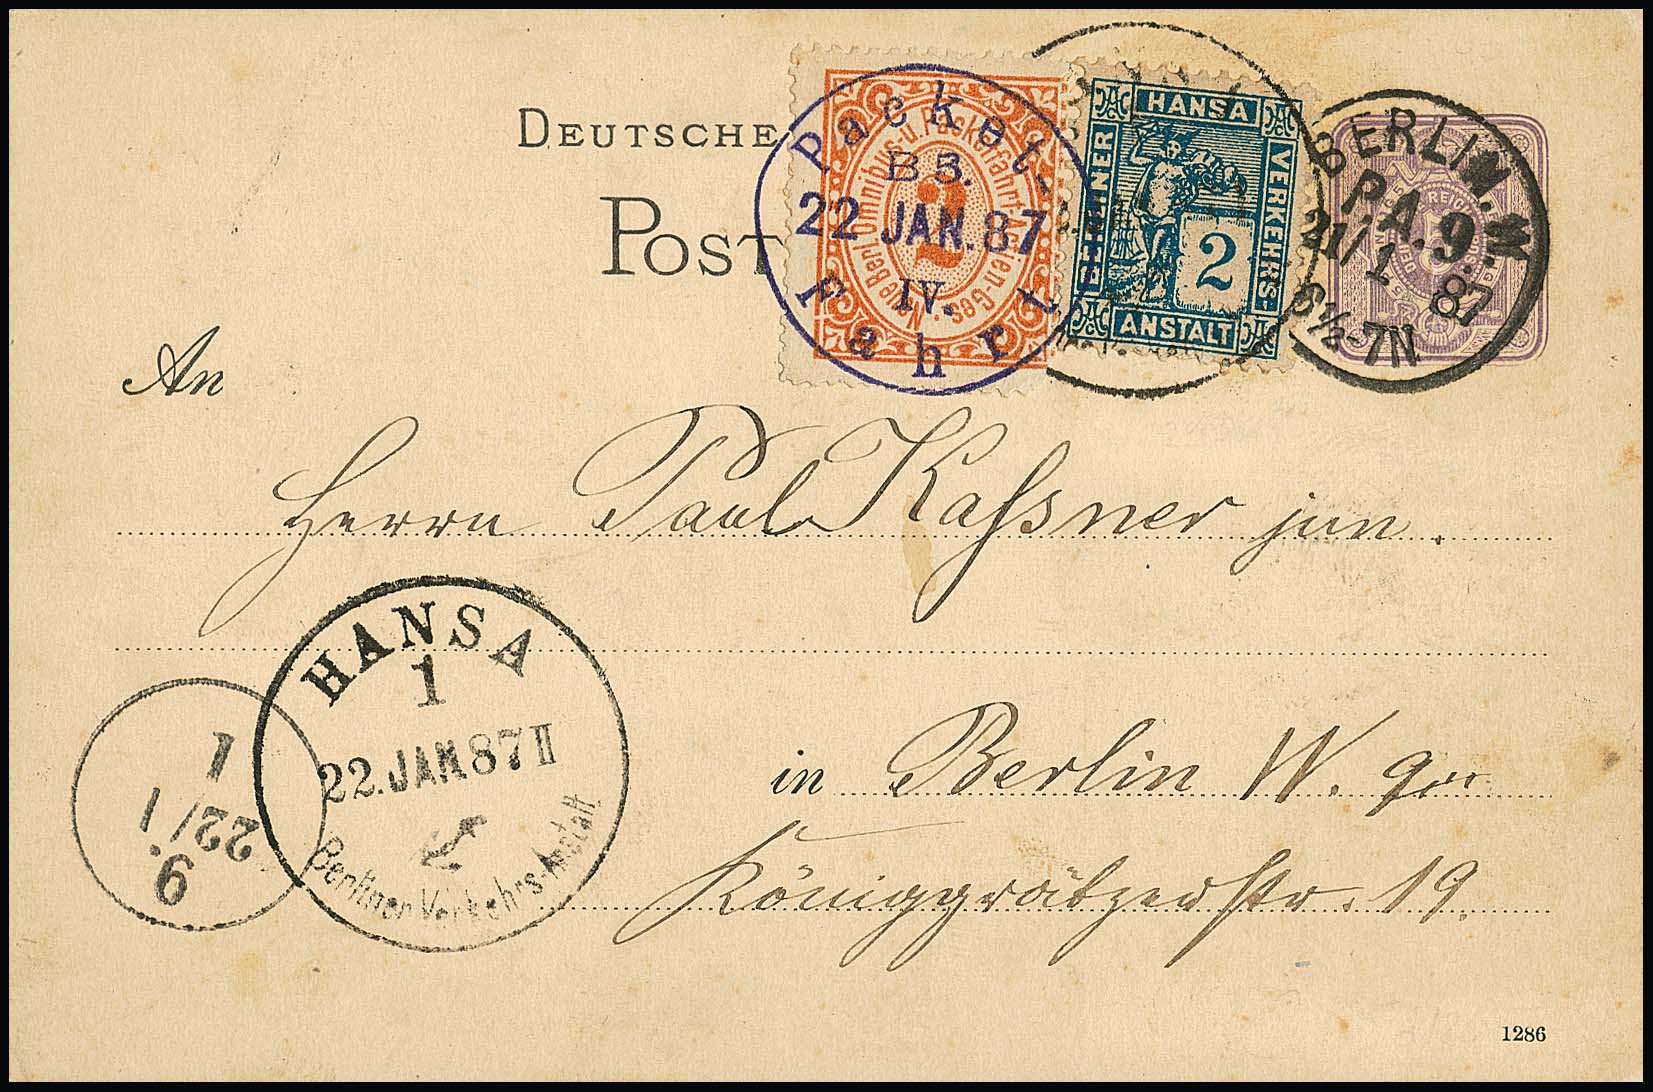 DEUTSCHE
POST
Neue Berl. Omnibus u. Packetfahrt Actien-Ges.
2
Packet-
B3.
22 JAN. 87
IV.
Fahrt
HANSA
BERLINER
VERKEHRS-
ANSTALT
2
BERLIN. W.
P.A. 9.
21/1 87
6½-7N
REICHS
An
Herrn Paul Kassner jun.
in Berlin W. 9
Königgrätzerstr. 19.
HANSA
1
22. JAN. 87 II
Berliner Verkehrs-Anstalt
1
22/1
9.
1286